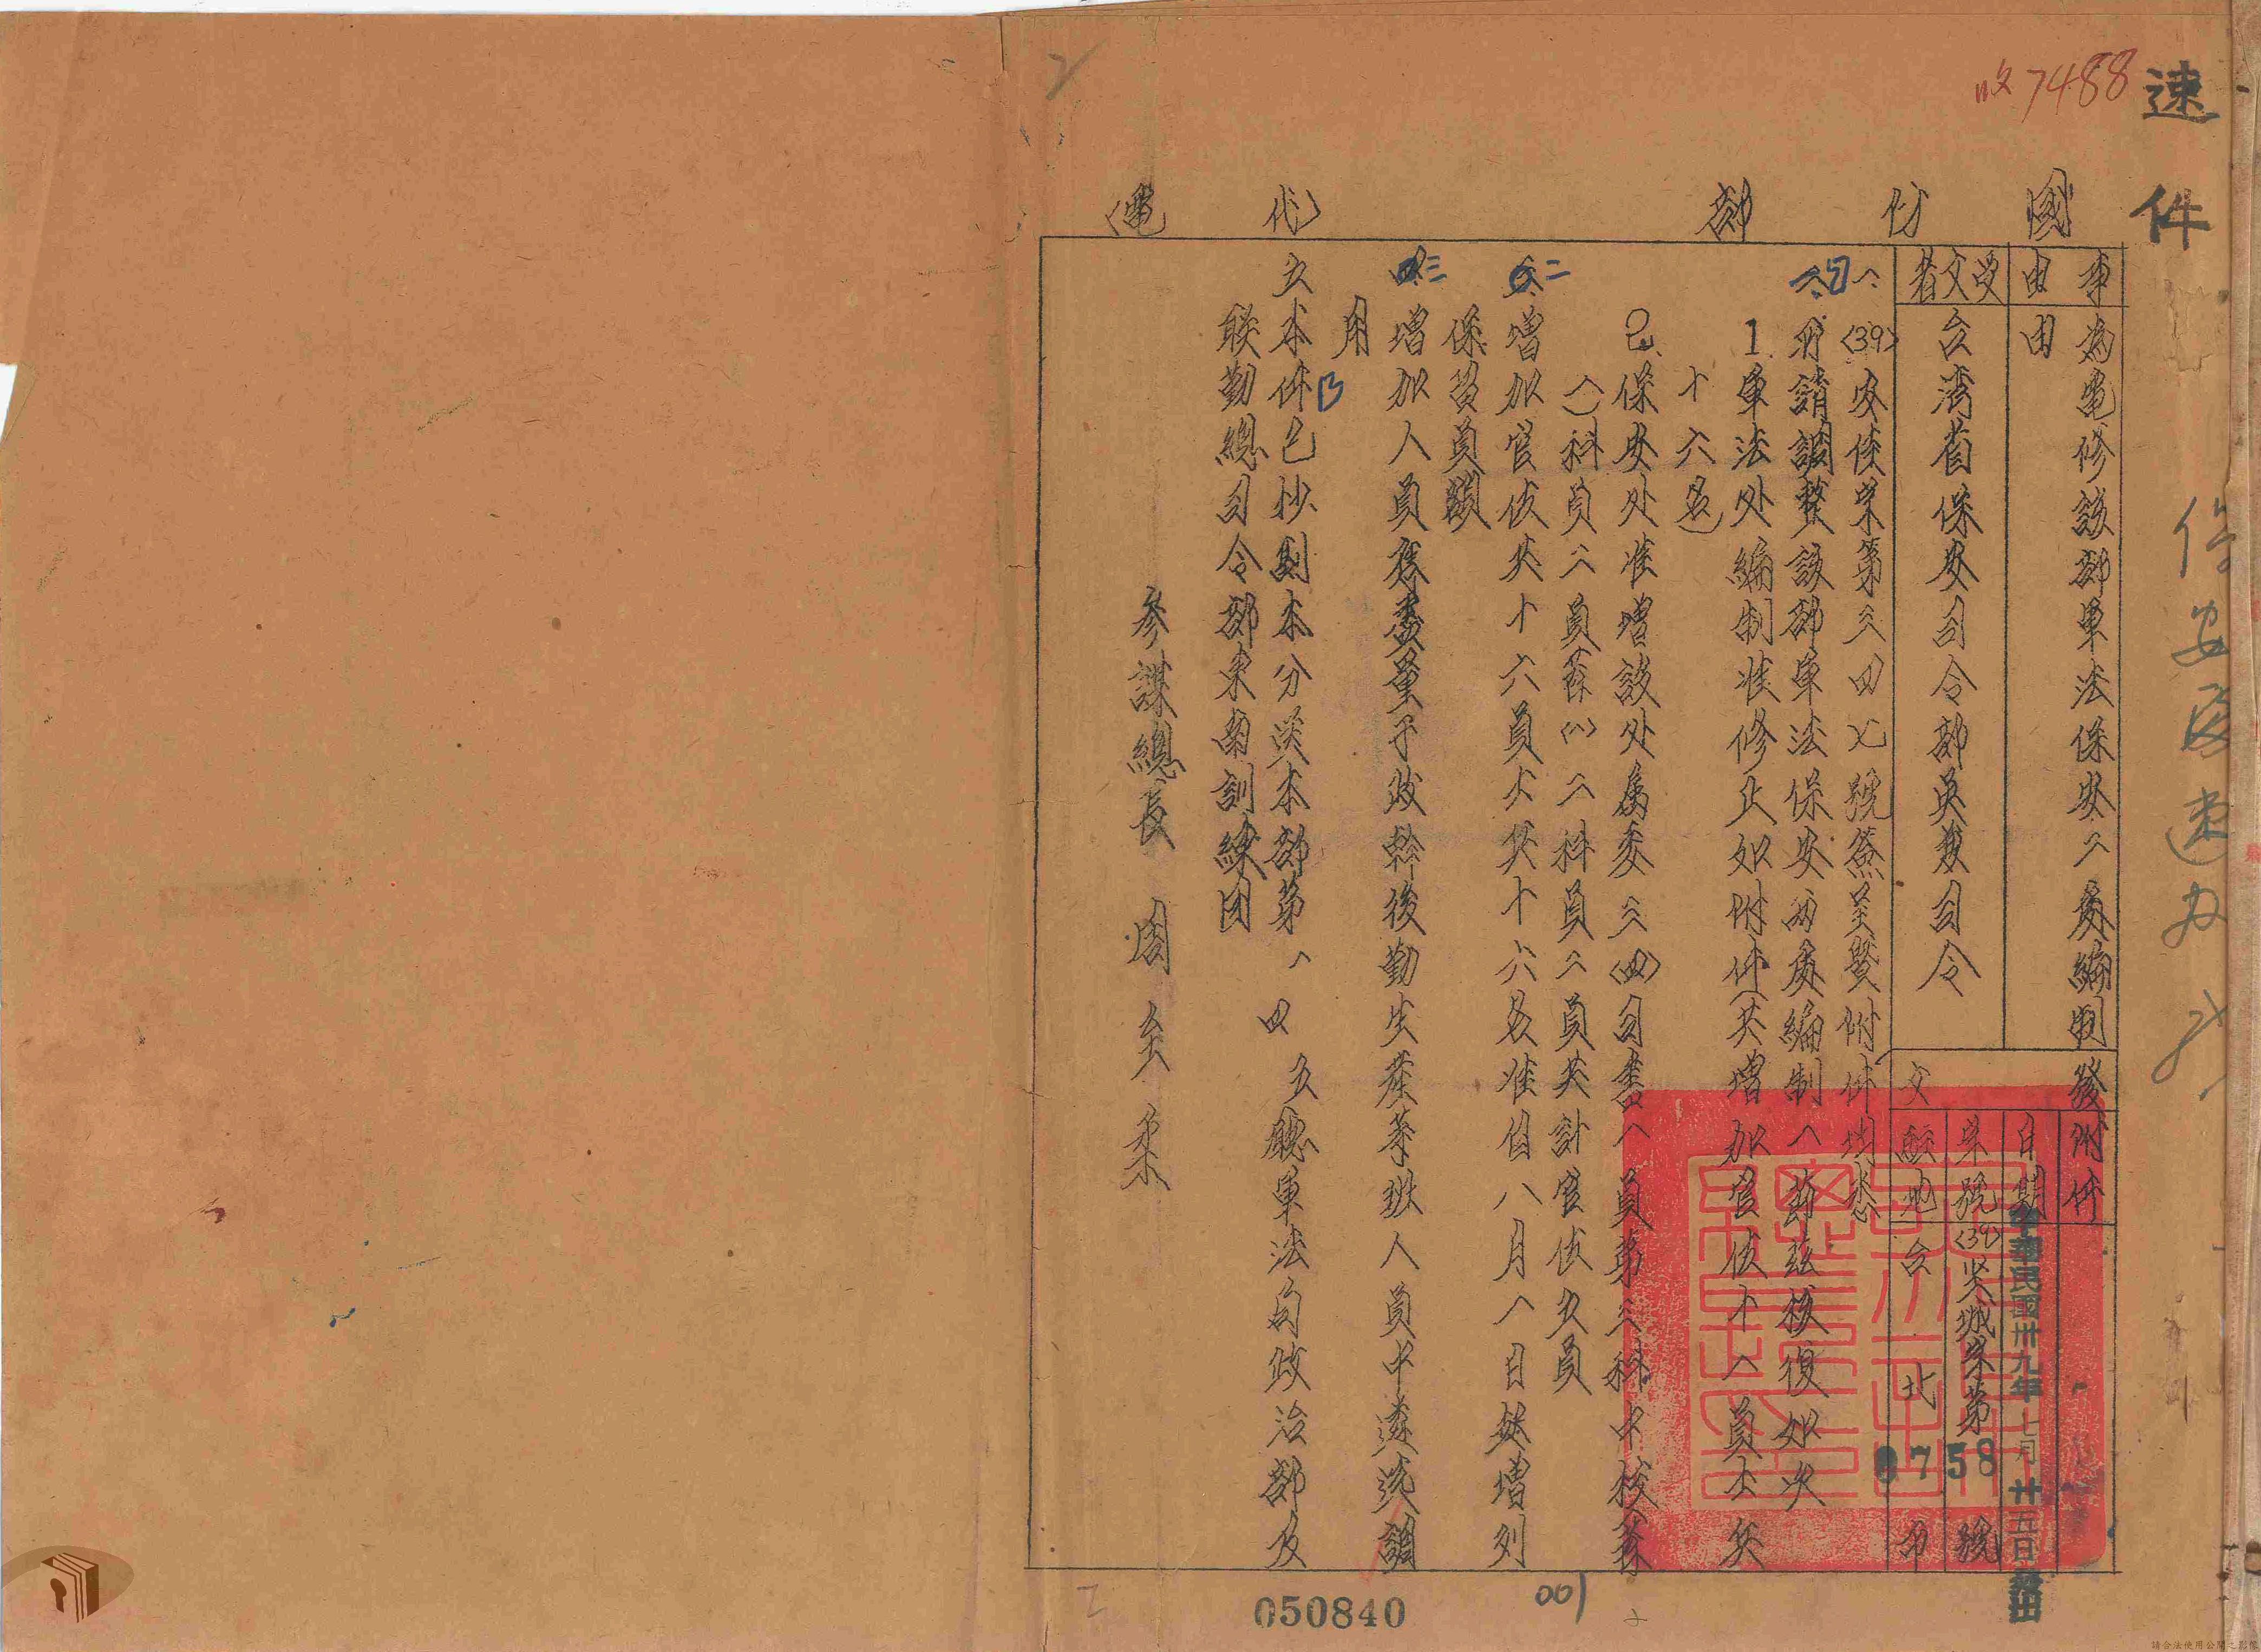 速件
收7488
國防部
代電
事由
為電修該部軍法保安二處編制
由
受文者
台湾省保安司令部吳兼司令
附件
發文
日期
中華民國卅九年七月廿五日發出
字號
(39)
字第
0758
號
駐地
台北
(39)安佳字第三四七號簽呈暨附件均悉
所請調整該部軍法保安兩處編制一節茲核復如次
1.軍法处編制准修正如附件(共增加官佐十一員士兵
十六名)
2.保安处准增設处属委三(四)司書一員第三科中校
(一)科員二員
二科員二員共計官佐五員
增加官佐共十六員士兵十六名准自八月一日起增列
保留員額
三
增加人員應盡量于政幹後勤生產等班人員中遴選調
用
五本件已抄副本分送本部第一、四、五廳軍法局政治部及
聯勤總司令部東南訓練团
參謀總長周至柔
050840
001
請合法使用公開之影像